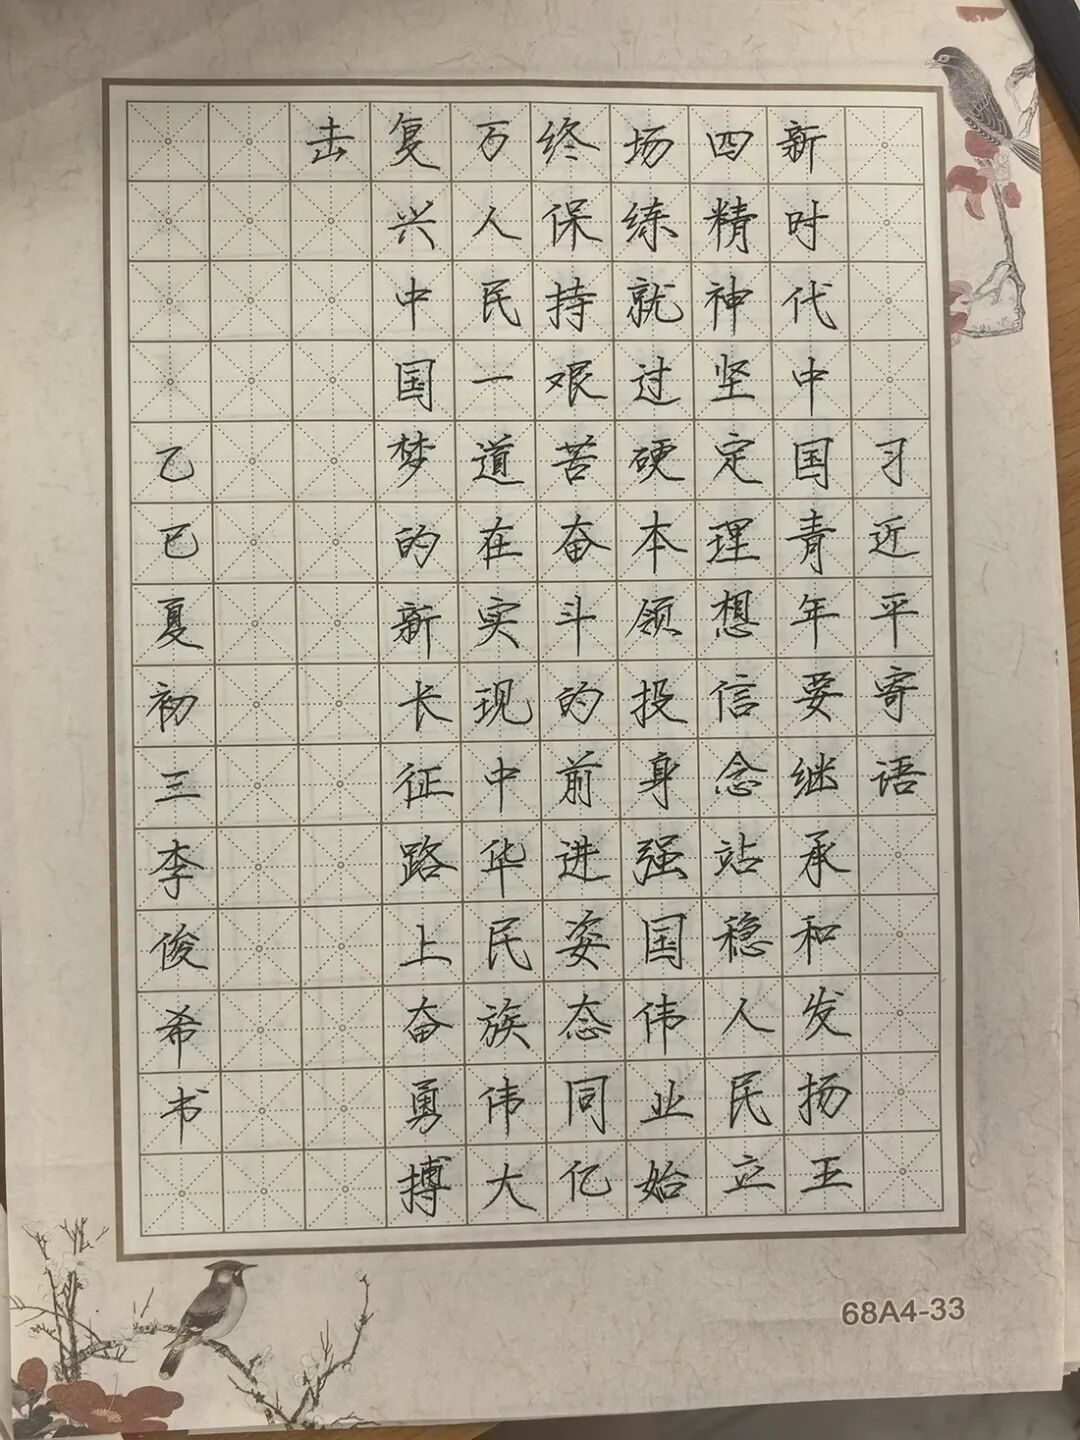 习近平寄语
新时代中国青年要继承和发扬王
四精神坚定理想信念站稳人民立
场练就过硬本领投身强国伟业始
终保持艰苦奋斗的前进姿态同亿
万人民一道在实现中华民族伟大
复兴中国梦的新长征路上奋勇搏
击
乙巳夏初三李俊希书
68A4-33